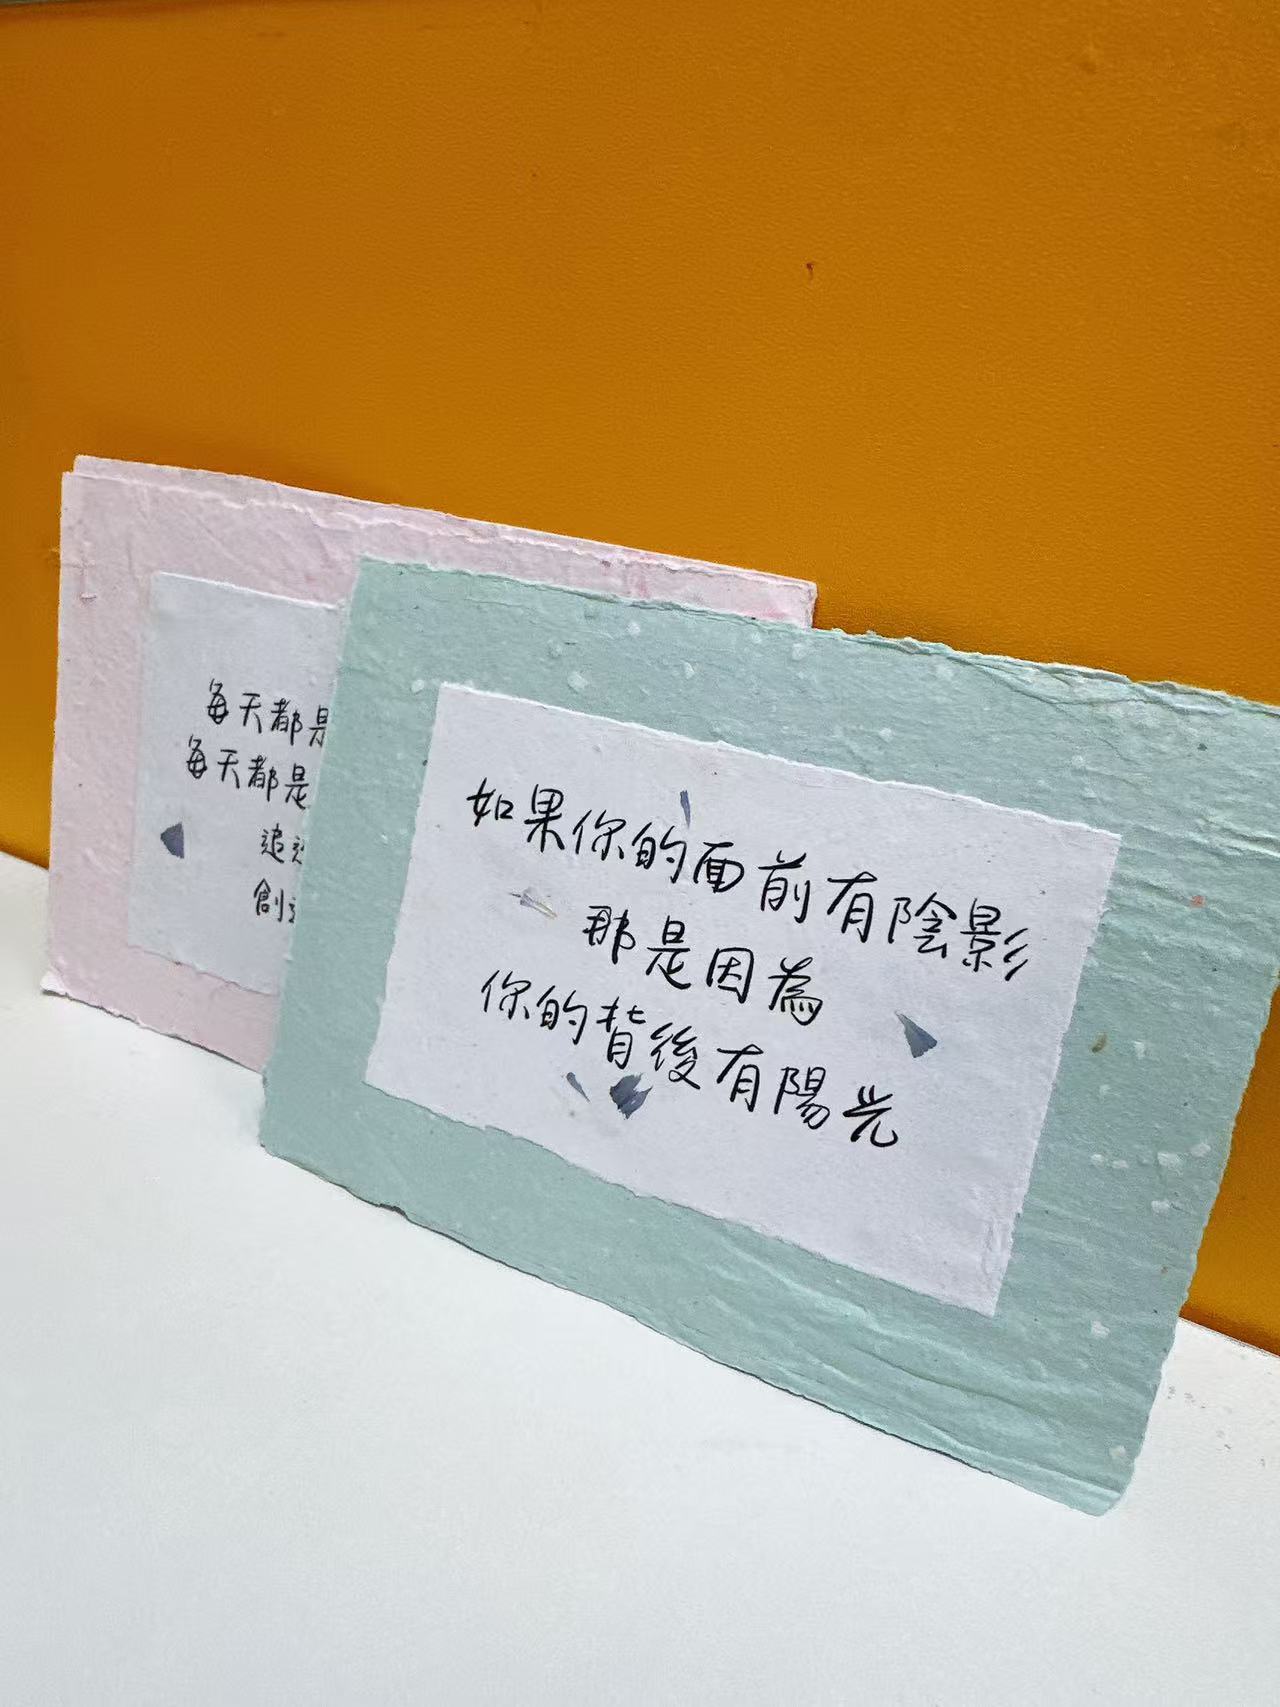 每天都是
每天都是
追
創
如果你的面前有陰影
那是因為
你的背後有陽光